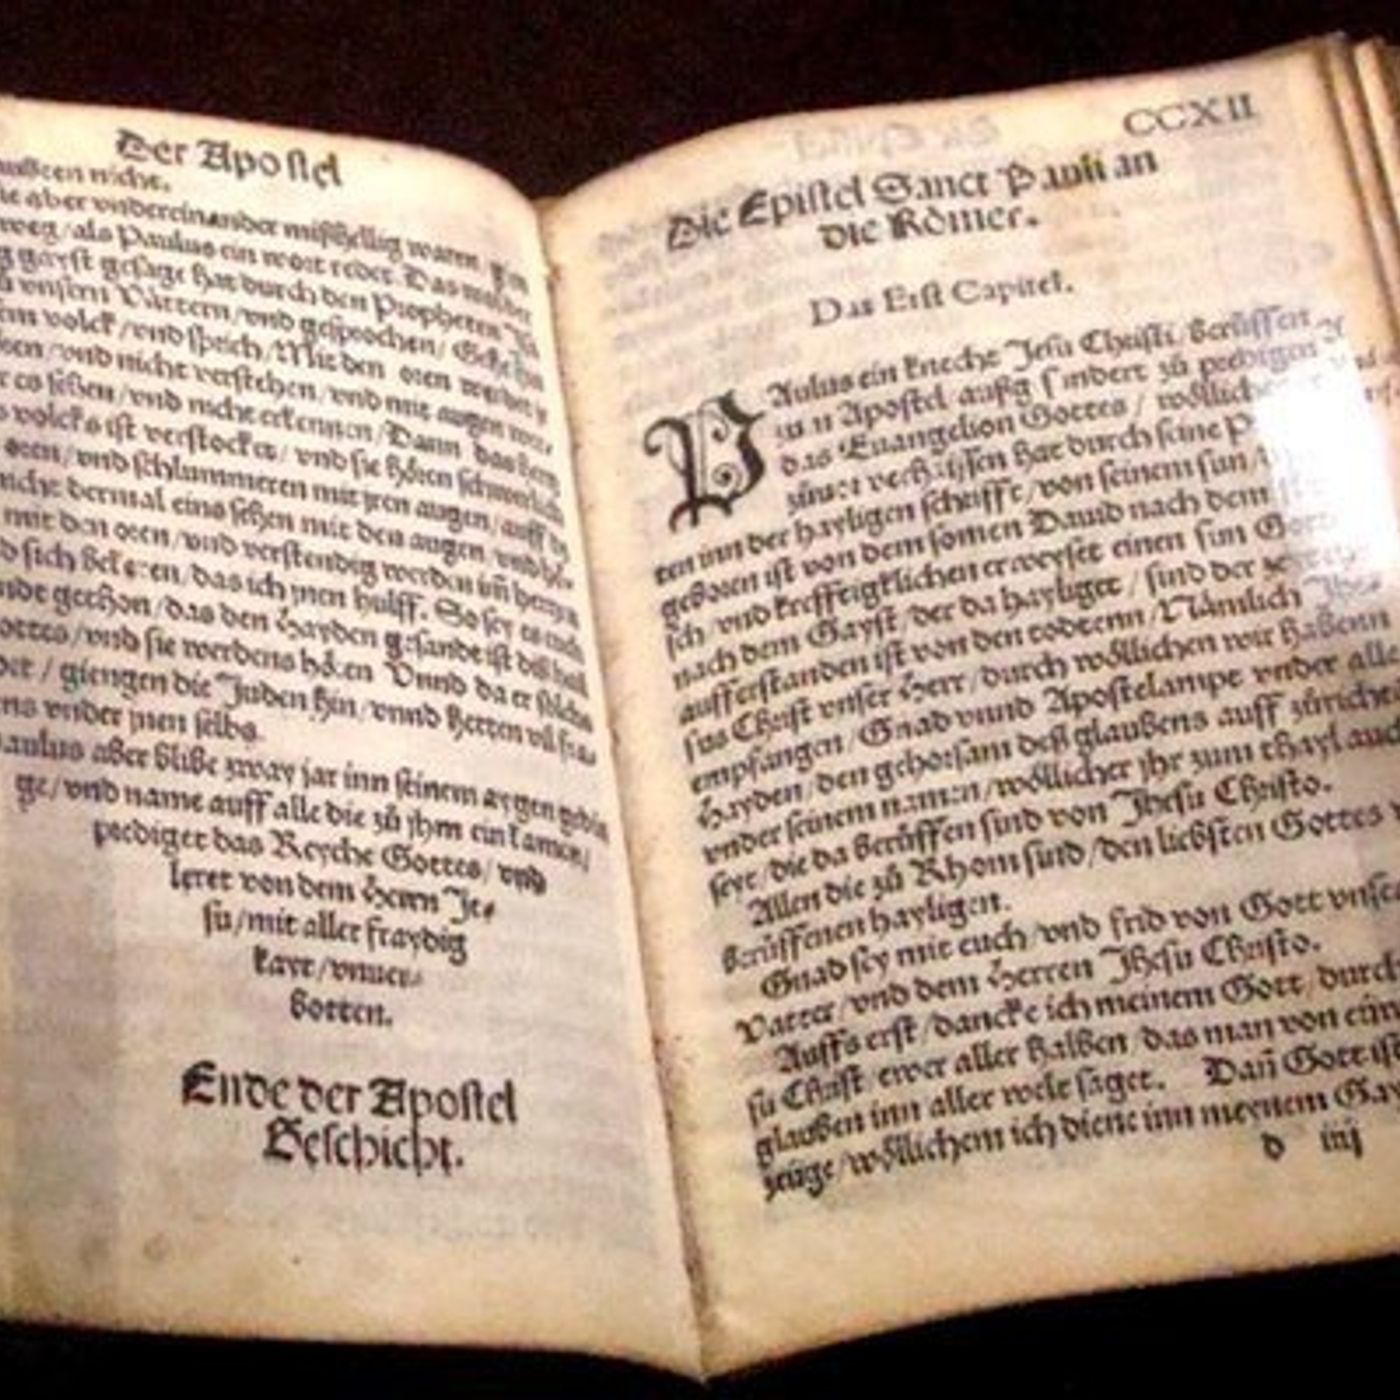 Der Apostel
nicht.
aber vndereinander mißhellig waren
weg/als Paulus ein wort redet. Das
gayst gesagt hat durch den Propheten
vnsern Vättern/vnd gesprochen/
volck/vnd sprich/Mit den oren werdet
/vnd nicht verstehen/vnd mit augen
es sehen/vnd nicht erkennen/Dann das hertz
volcks ist verstocket/vnd sie hören schwerlich
oren/vnd schlummeren mit jren augen/auff
dermal eins sehen mit den augen/vnd
mit den oren/vnd verstendig werden im hertzen
sich bekeren/das ich jnen hulff. So sey es euch
gethon/das den Hayden gesandt ist diß hail
Gottes/vnd sie werdens hören Vnnd da er
/giengen die Juden hin/vnnd hetten vil
vnder jnen selbs.
Paulus aber blibe zway jar inn seinem aygen
ge/vnd name auff alle die zů jhm ein kamen/
prediget das Reyche Gottes/vnd
leret von dem Herrn Je-
su/mit aller fraydig
kayt/vnuer-
botten.
Ende der Apostel
Geschicht.
CCXII
Die Epistel Sanct Pauli an
die Römer.
Das Erst Capitel.
PAulus ein knecht Jesu Christi/berůffen
Apostel außgesindert zů predigen
das Euangelion Gottes/wöllich
zůuor verhayssen hat durch seine
ten inn der hayligen schrifft/von seinem sun/
geboren ist von dem somen Dauid nach dem
sch/vnd krefftigklichen erweyset einen sun
nach dem Gayst/der da hayliget/sind der
aufferstanden ist von den todtenn/Nämlich
sus Christ vnser Herr/durch wöllichen wir habenn
empfangen/Gnad vnnd Apostelampt vnder alle
Hayden/den gehorsam deß glaubens auff zůrichten
vnder seinem namen/wöllicher jhr zum thayl auch
seyt/die da berůffen sind von Jhesu Christo.
Allen die zů Rhom sind/den liebsten Gottes
berůffenen hayligen.
Gnad sey mit euch/vnd frid von Gott vnse
Vatter/vnd dem Herren Jhesu Christo.
Auffs erst/dancke ich meinem Gott/durch
su Christ ewer aller halben/das man von ewrn
glauben inn aller welt saget. Dañ Gott ist
zeüge/wöllichem ich diene inn meynem
d iiij